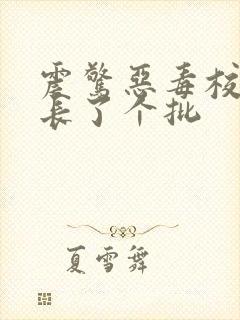 震惊恶毒校
长了个批
夏雪舞